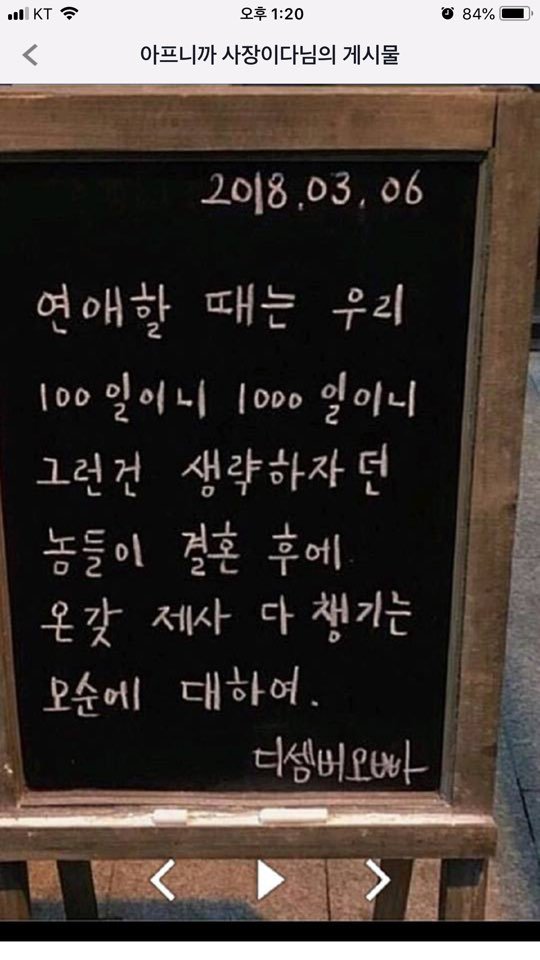 KT 오후 1:20 84%
아프니까 사장이다님의 게시물
2018.03.06
연애할 때는 우리
100일이니 1000일이니
그런건 생략하자던
놈들이 결혼 후에
온갖 제사 다 챙기는
모순에 대하여.
디셈버오빠